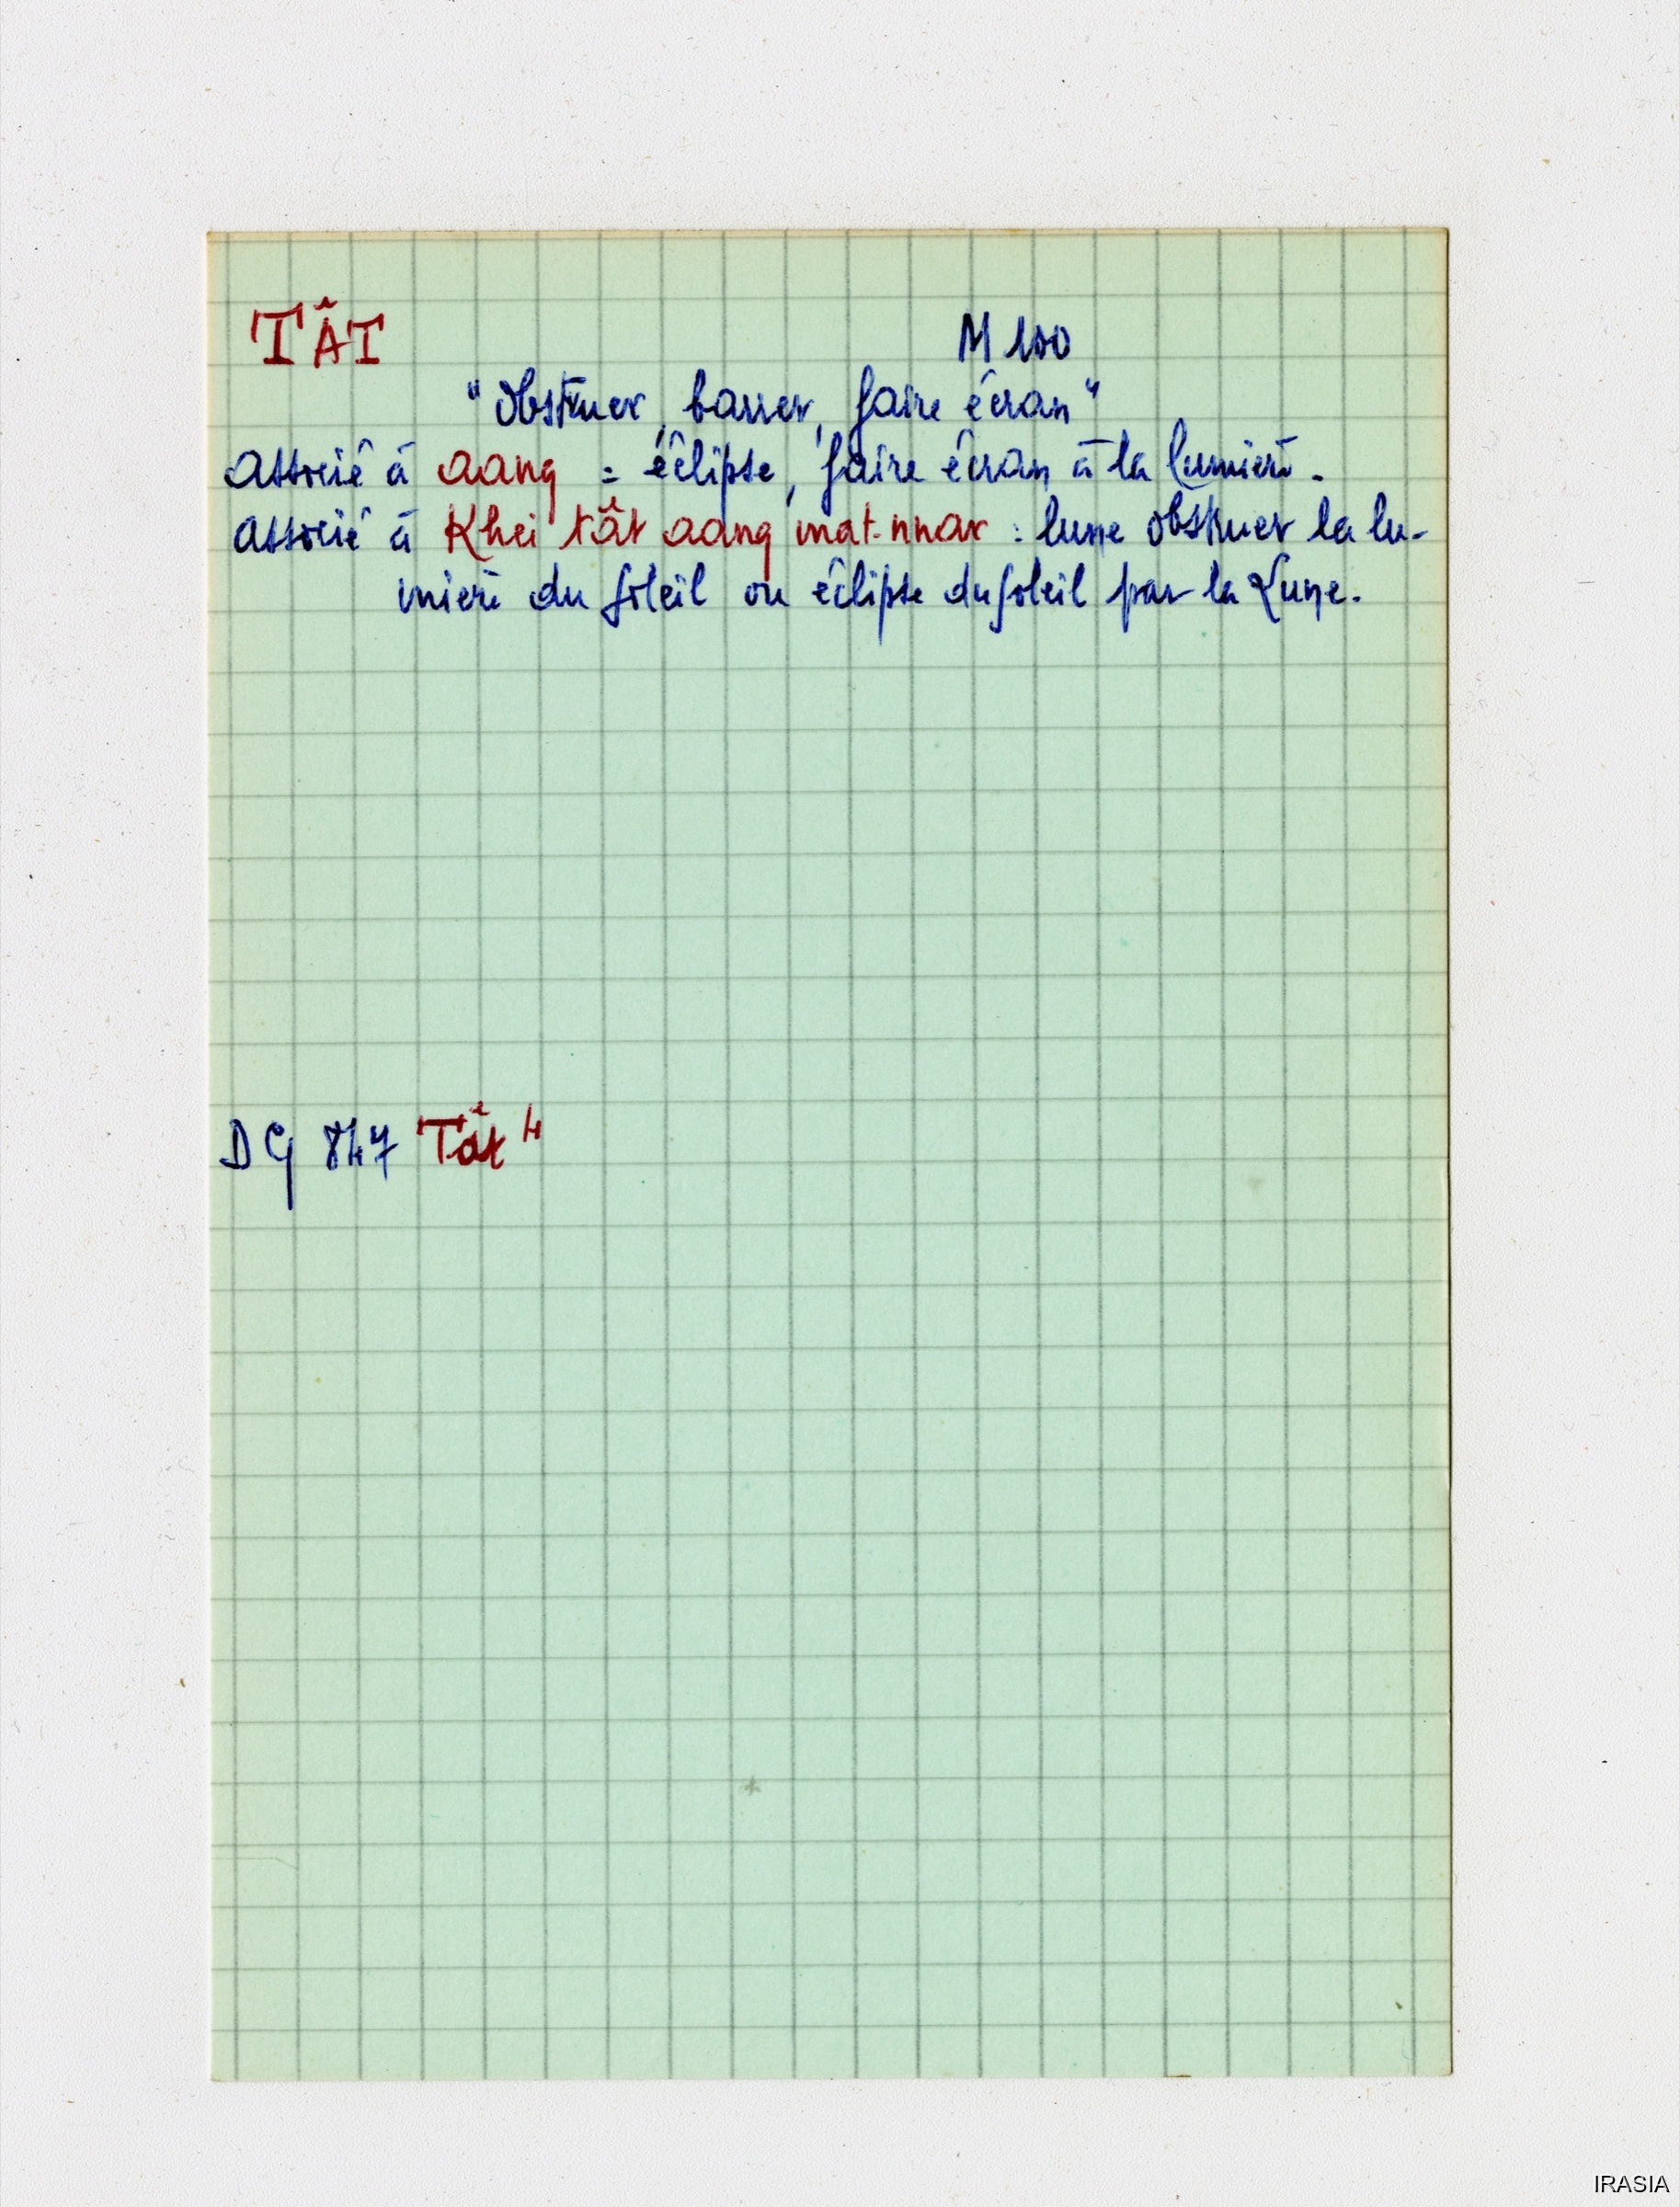 TÂT M 100
"Obstruer, barrer, faire écran"
associé à aang = éclipse, faire écran à la lumière.
associé à Khei tât aang mat-nnar : lune obstruer la lu-
mière du soleil ou éclipse du soleil par la Lune.
DG 847 Tât 4
IRASIA